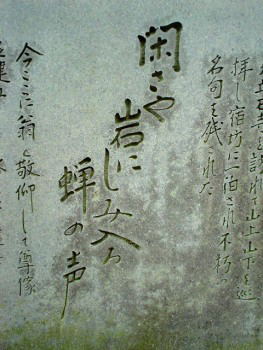 立石寺を訪れて山上山下を巡
拝し宿坊に一泊され不朽の
名句を残された
閑さや
岩に
しみ入る
蝉の声
今ここに翁を敬仰して尊像